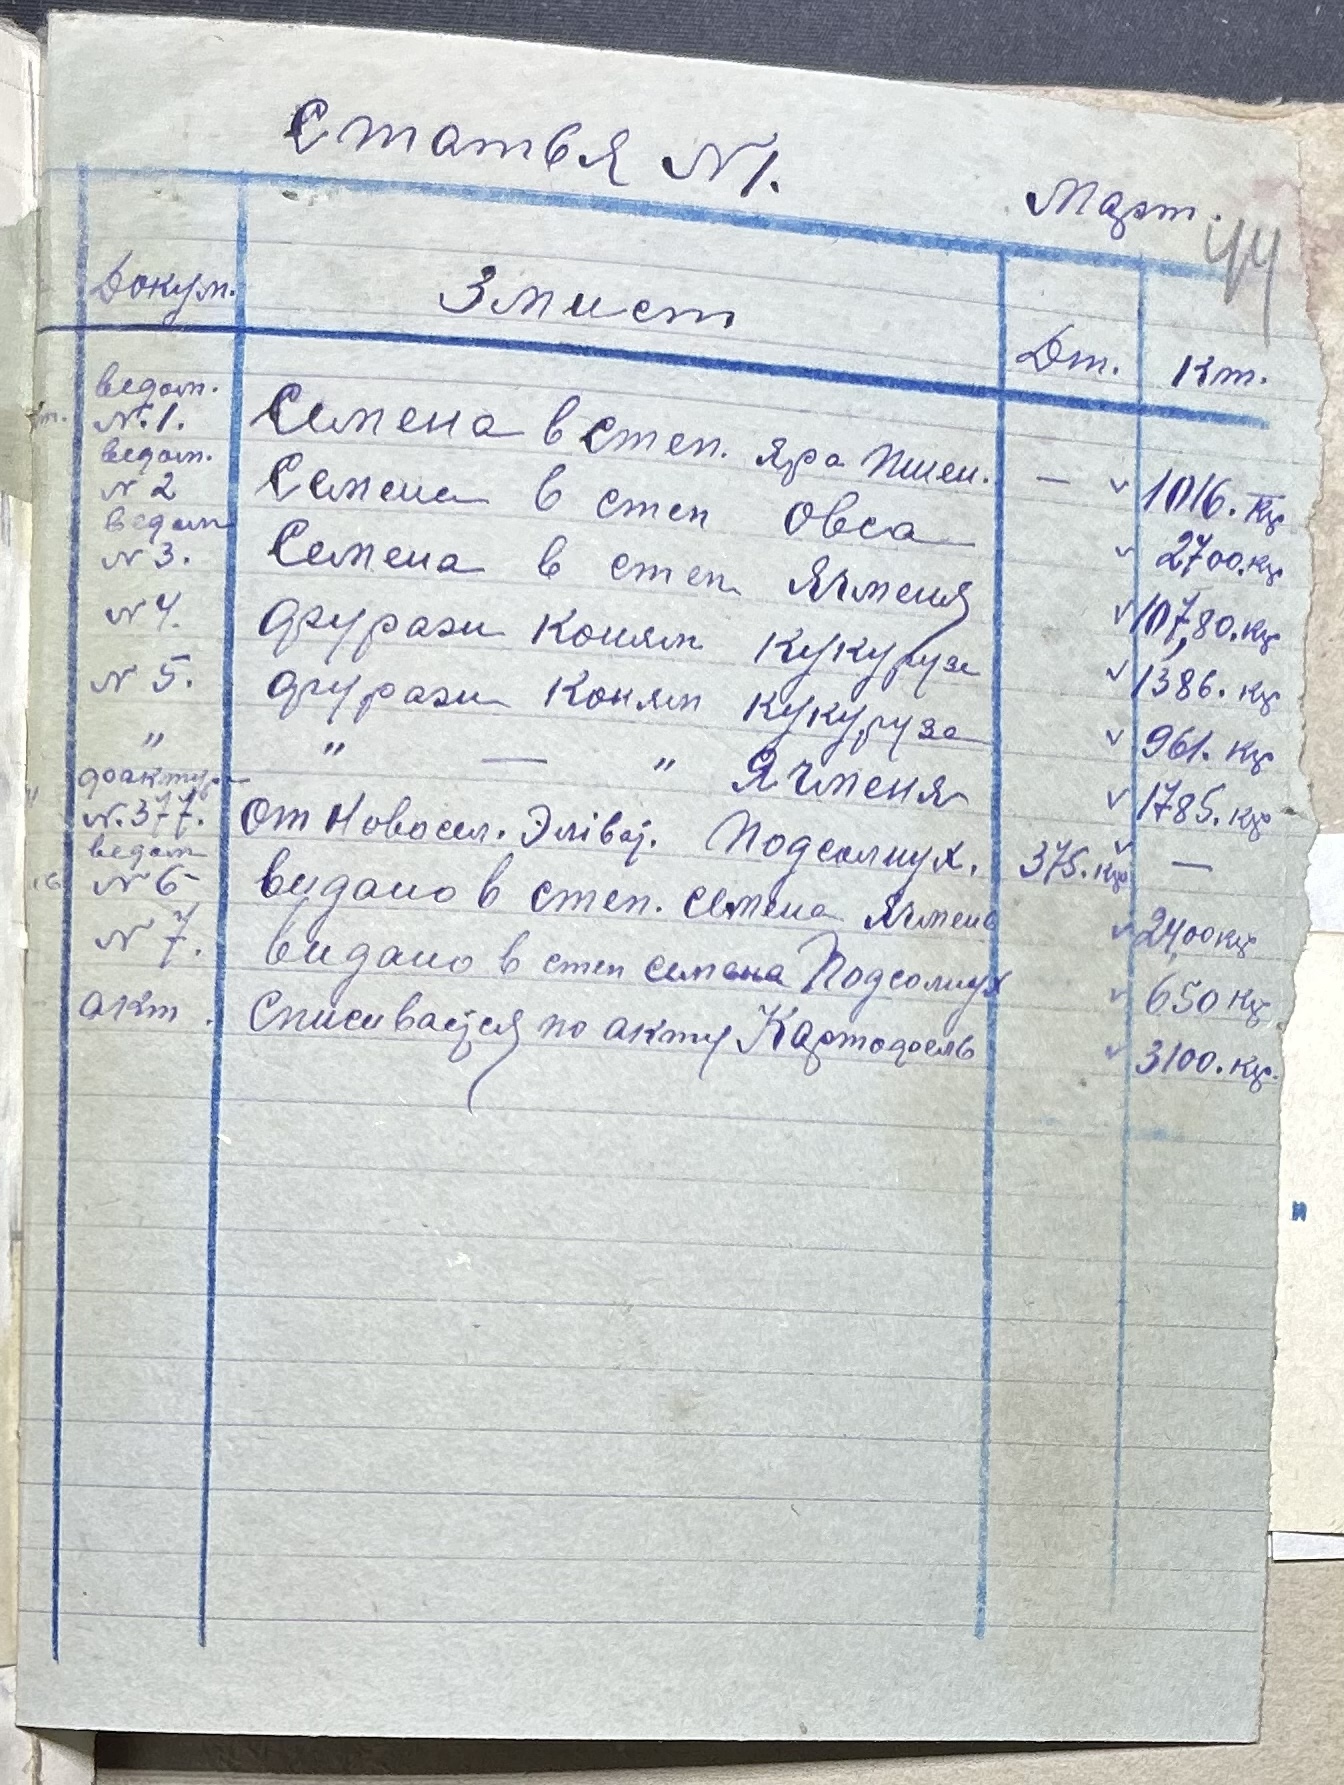 Статья №1.
Март.
44
Докум. Змист Дт. Кт.
ведом.
№.1. Семена в степ. яра пшен. — ✓ 1016. кг
ведом.
№2 Семена в степ овса ✓ 2700.кг
ведом
№3. Семена в степ Ячменя ✓ 107,80.кг
№4. фуражи коням кукуруза ✓ 1386. кг
№5. фуражи коням кукуруза ✓ 961. кг
„ „ — „ Ячменя ✓ 1785. кг
№.377. От Новосел. Эліват. Подсолнух. 375.кг ✓ —
ведом
№6 видано в степ. семена ячмень ✓ 24,00кг
№7. видано в степ семена Подсолнух ✓ 650 кг
акт. Списивается по акту Картофель ✓ 3100.кг.